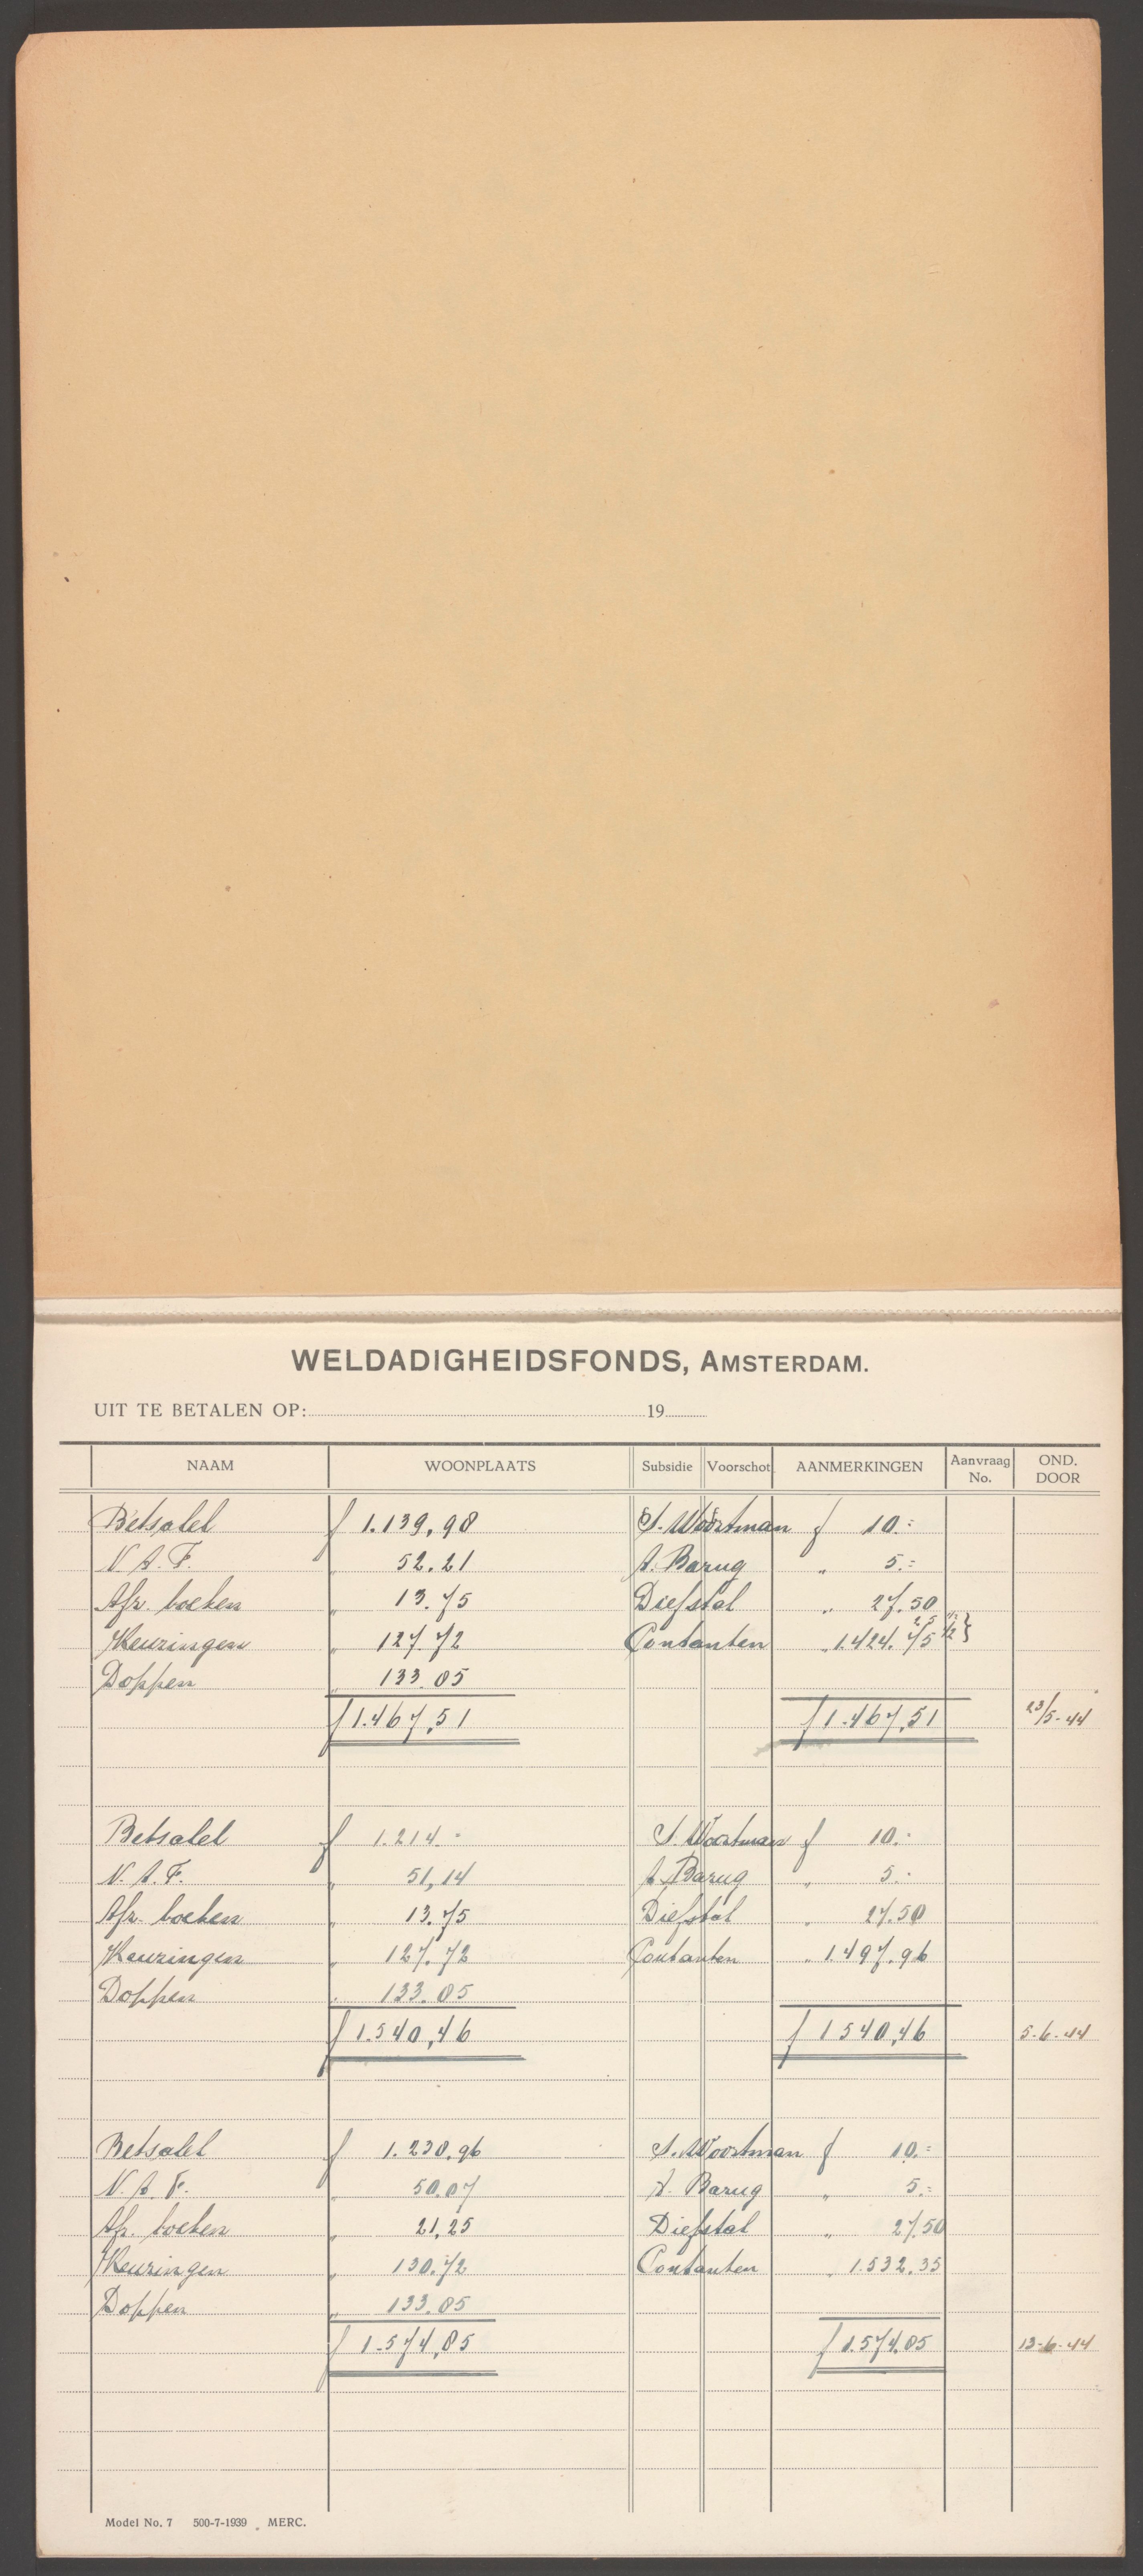 WELDADIGHEIDSFONDS, AMSTERDAM.
UIT TE BETALEN OP: 19
NAAM WOONPLAATS Subsidie Voorschot AANMERKINGEN Aanvraag No. OND. DOOR
Betsalel f 1.139,98 S. Woortman f 10.=
N.A.F. " 52.21 A. Barug " 5.=
Afr. boeken " 13.75 Diefstal " 27.50
Keuringen " 127.72 Contanten " 1.424.75
Doppen " 133.85
f 1.467,51 f 1.467,51 23/5-44
Betsalel f 1.214.- S. Woortman f 10.-
N.A.F. " 51,14 A. Barug " 5.-
Afr. boeken " 13.75 Diefstal " 27.50
Keuringen " 127.72 Contanten " 1.497.96
Doppen " 133.85
f 1.540,46 f 1540,46 5-6-44
Betsalel f 1.238,96 S. Woortman f 10.=
N.A.F. " 50.07 A. Barug " 5.=
Afr. boeken " 21,25 Diefstal " 27.50
Keuringen " 130.72 Contanten " 1.532.35
Doppen " 133.85
f 1.574,85 f 1.574.85 13-6-44
Model No. 7 500-7-1939 MERC.